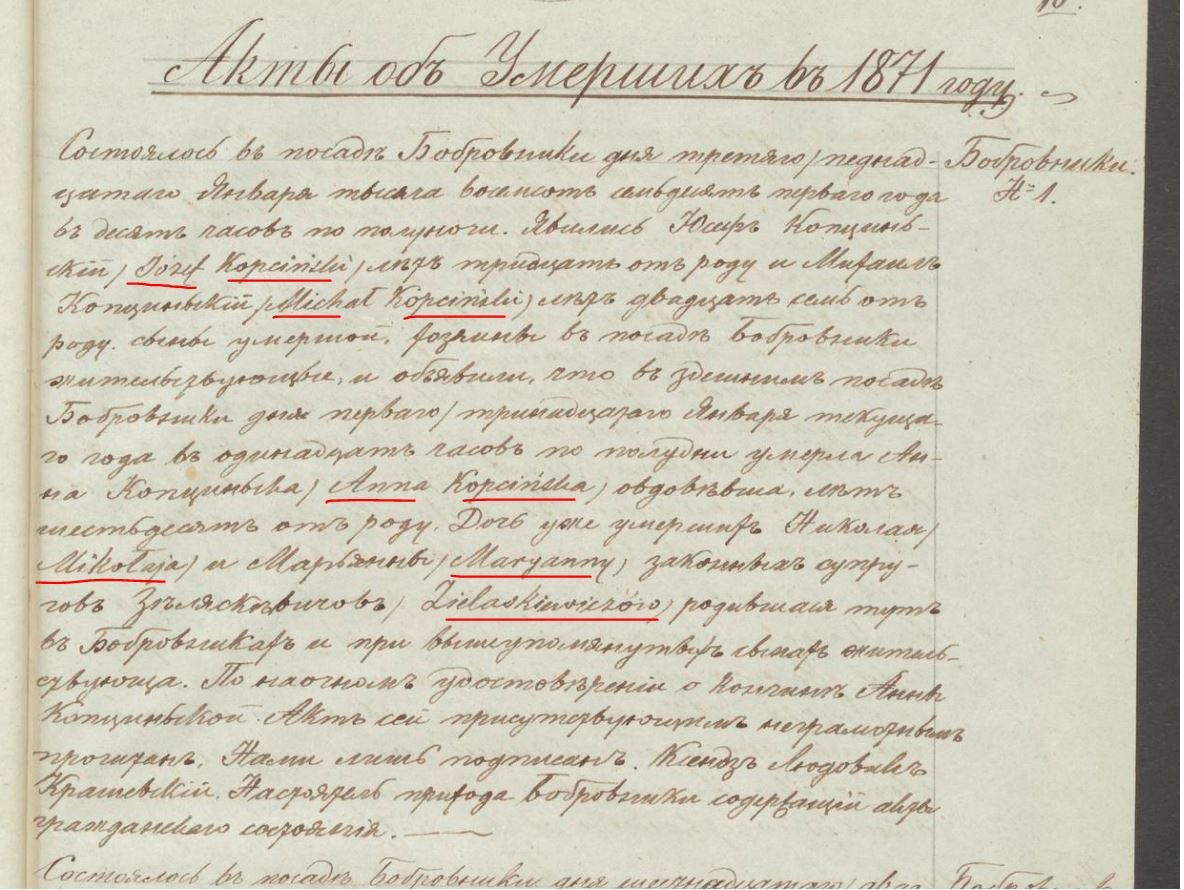 Акты объ Умершихъ въ 1871 году.
Состоялось въ посадѣ Бобровники дня третяго / педнад-
Бобровники.
№ 1.
цатаго Января тысяча восемсотъ семьдесятъ перваго года
въ десятъ часовъ по полуночи. Явились Юсефъ Копцинь-
скій / Józef Kopciński / лѣтъ тридцать отъ роду и Михаилъ
Копциньскій / Michał Kopciński / лѣтъ двадцатъ семь отъ
роду. сыны умершой, въ посадѣ Бобровники
жительзвующые, и объявили, что въ здешнимъ посадѣ
Бобровники дня перваго / тринадцатого Января текуща-
го года въ одинадцатъ часовъ по полудни умерла Ан-
на Копциньска / Anna Kopcińska / овдовѣвша, лѣтъ
шестьдесятъ отъ роду. Дочь уже умершихъ Николая /
Mikołaja / и Марьянны / Maryanny / законныхъ супру-
говъ Зѣляскѣвичовъ / Zielaskiewiczów / родившаяся тутъ
въ Бобровникахъ и при вышеупомянутыхъ сынахъ житель-
ствующа. По наочномъ удостовѣреніи о кончинѣ Анны
Копциньской. Актъ сей присутствующимъ неграмотнымъ
прочитанъ, Нами лишь подписанъ. Ксендзъ Людовикъ
Крашевскій. Настоятель прихода Бобровники содержащій акты
гражданского состоянія.
Состоялось въ посадѣ Бобровники дня